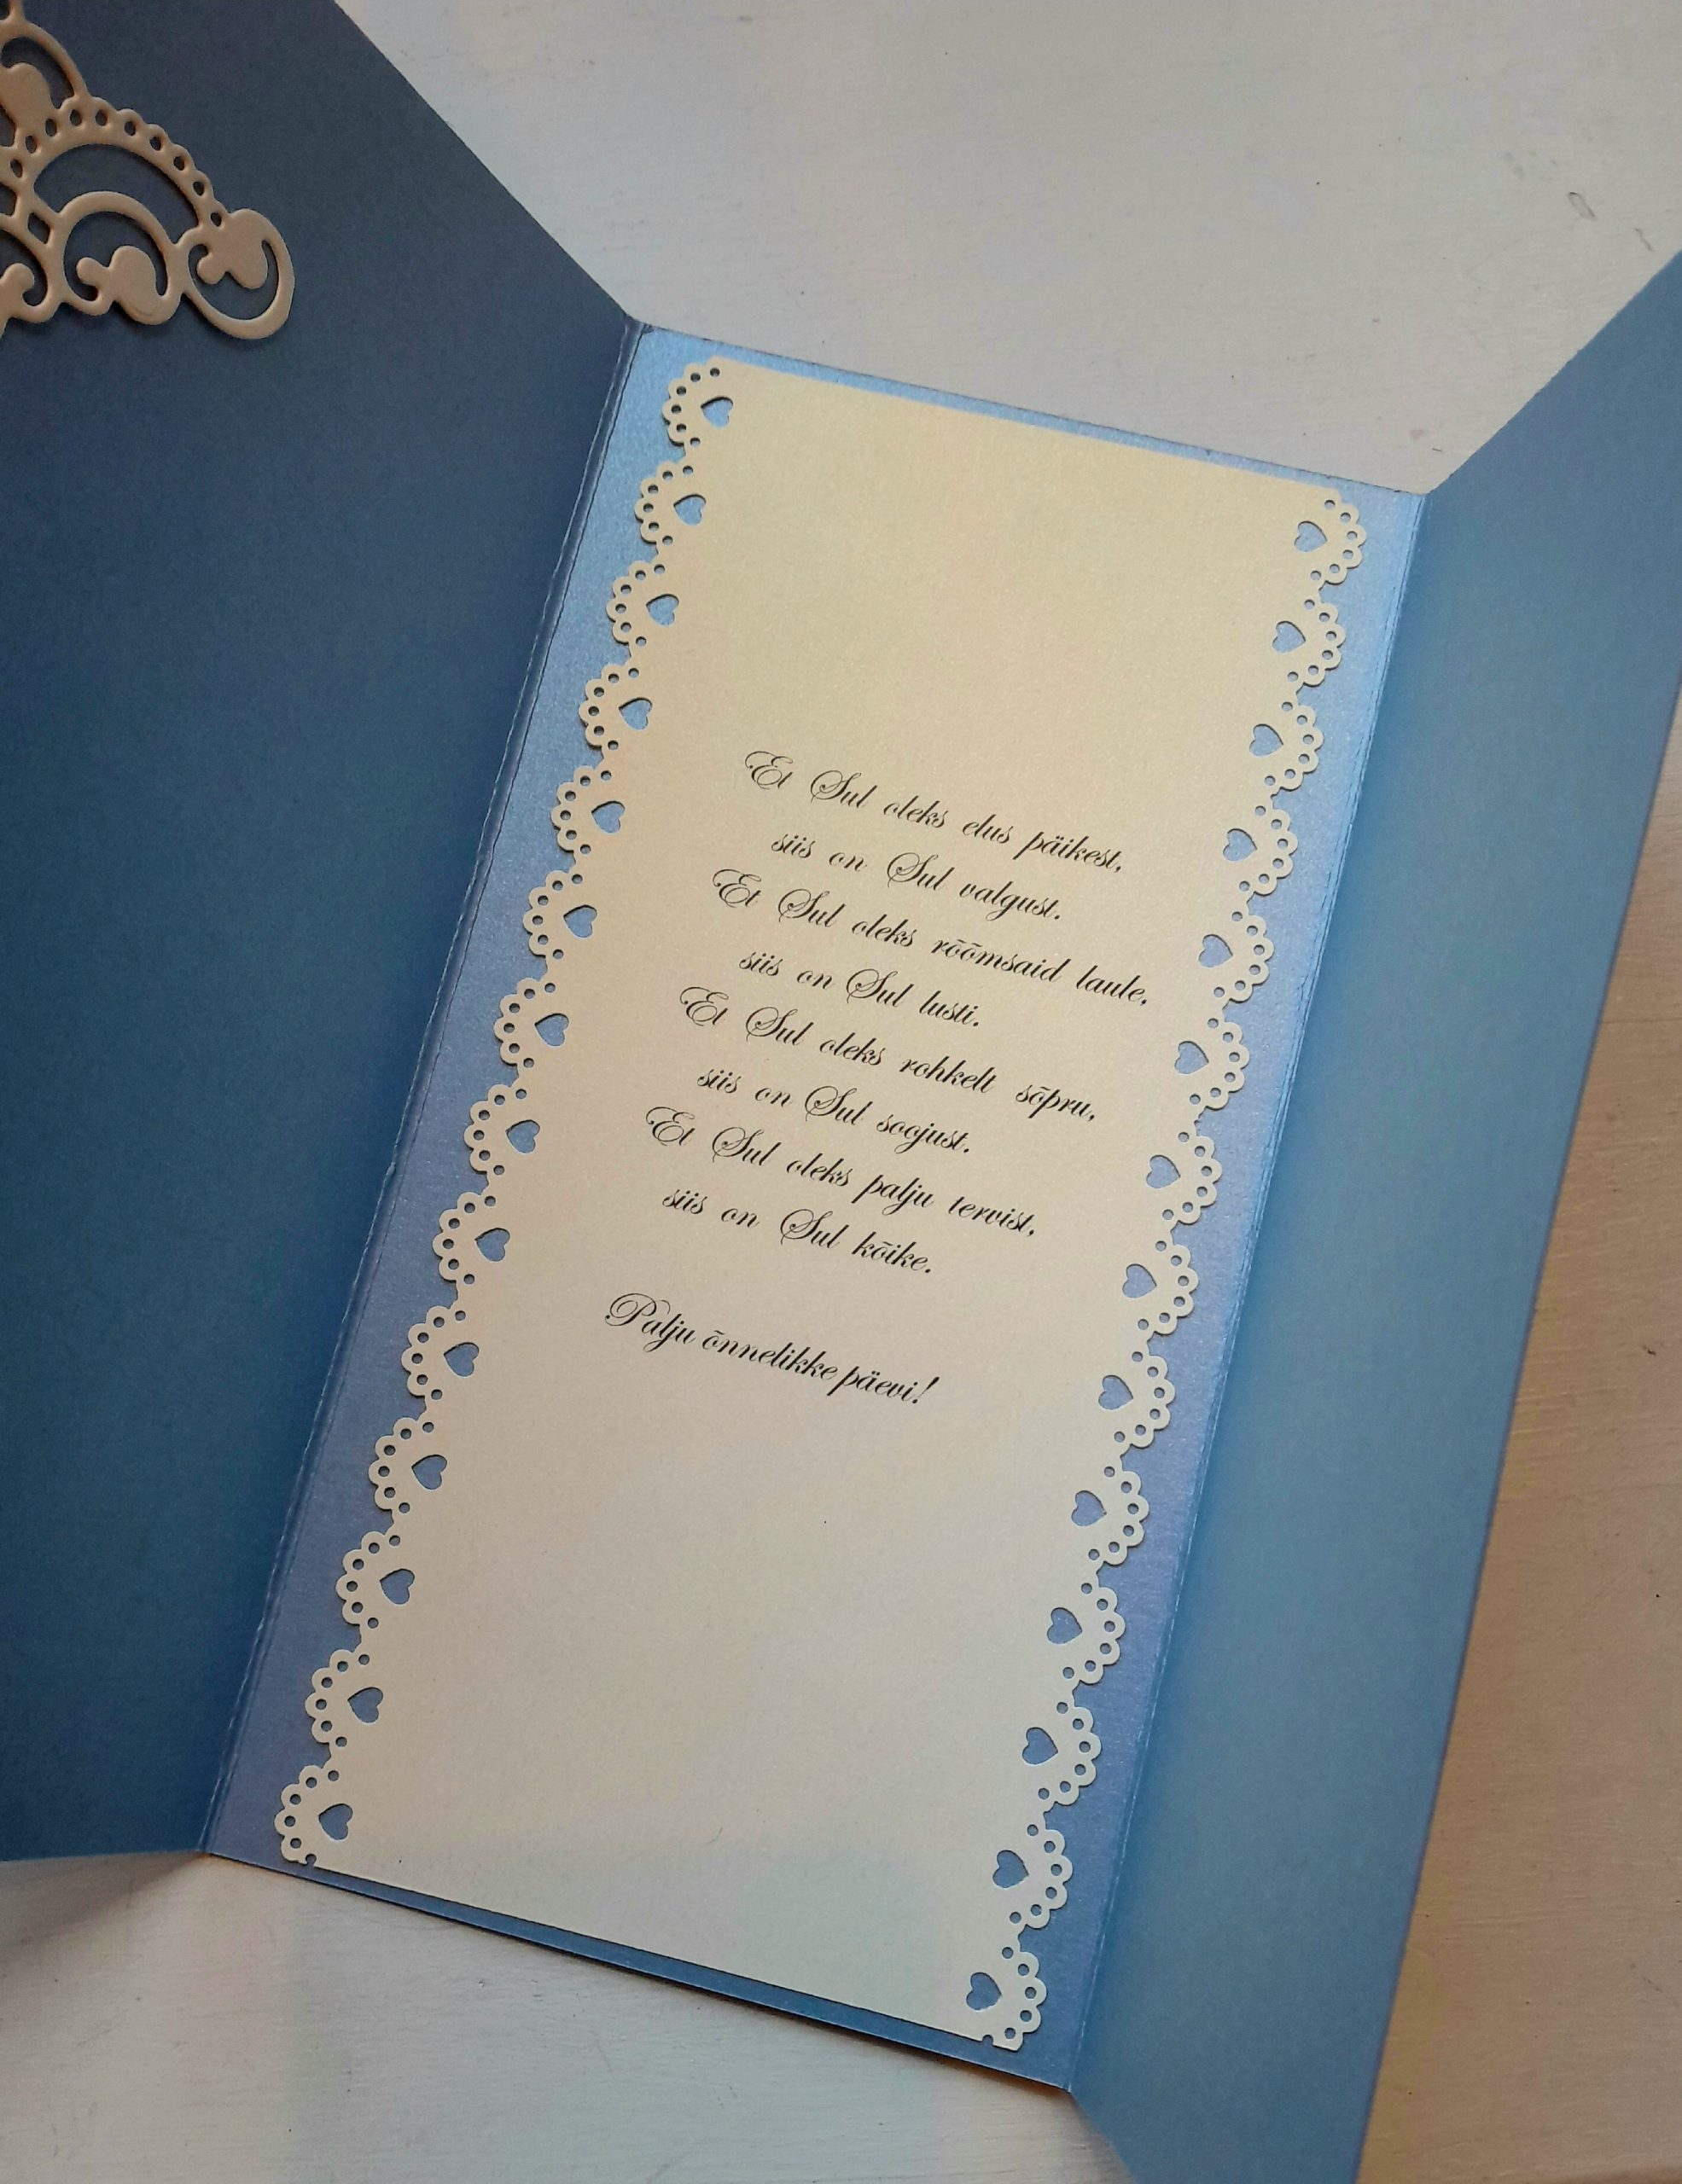 Et Sul oleks elus päikest,
siis on Sul valgust.
Et Sul oleks rõõmsaid laule,
siis on Sul lusti.
Et Sul oleks rohkelt sõpru,
siis on Sul soojust.
Et Sul oleks palju tervist,
siis on Sul kõike.
Palju õnnelikke päevi!